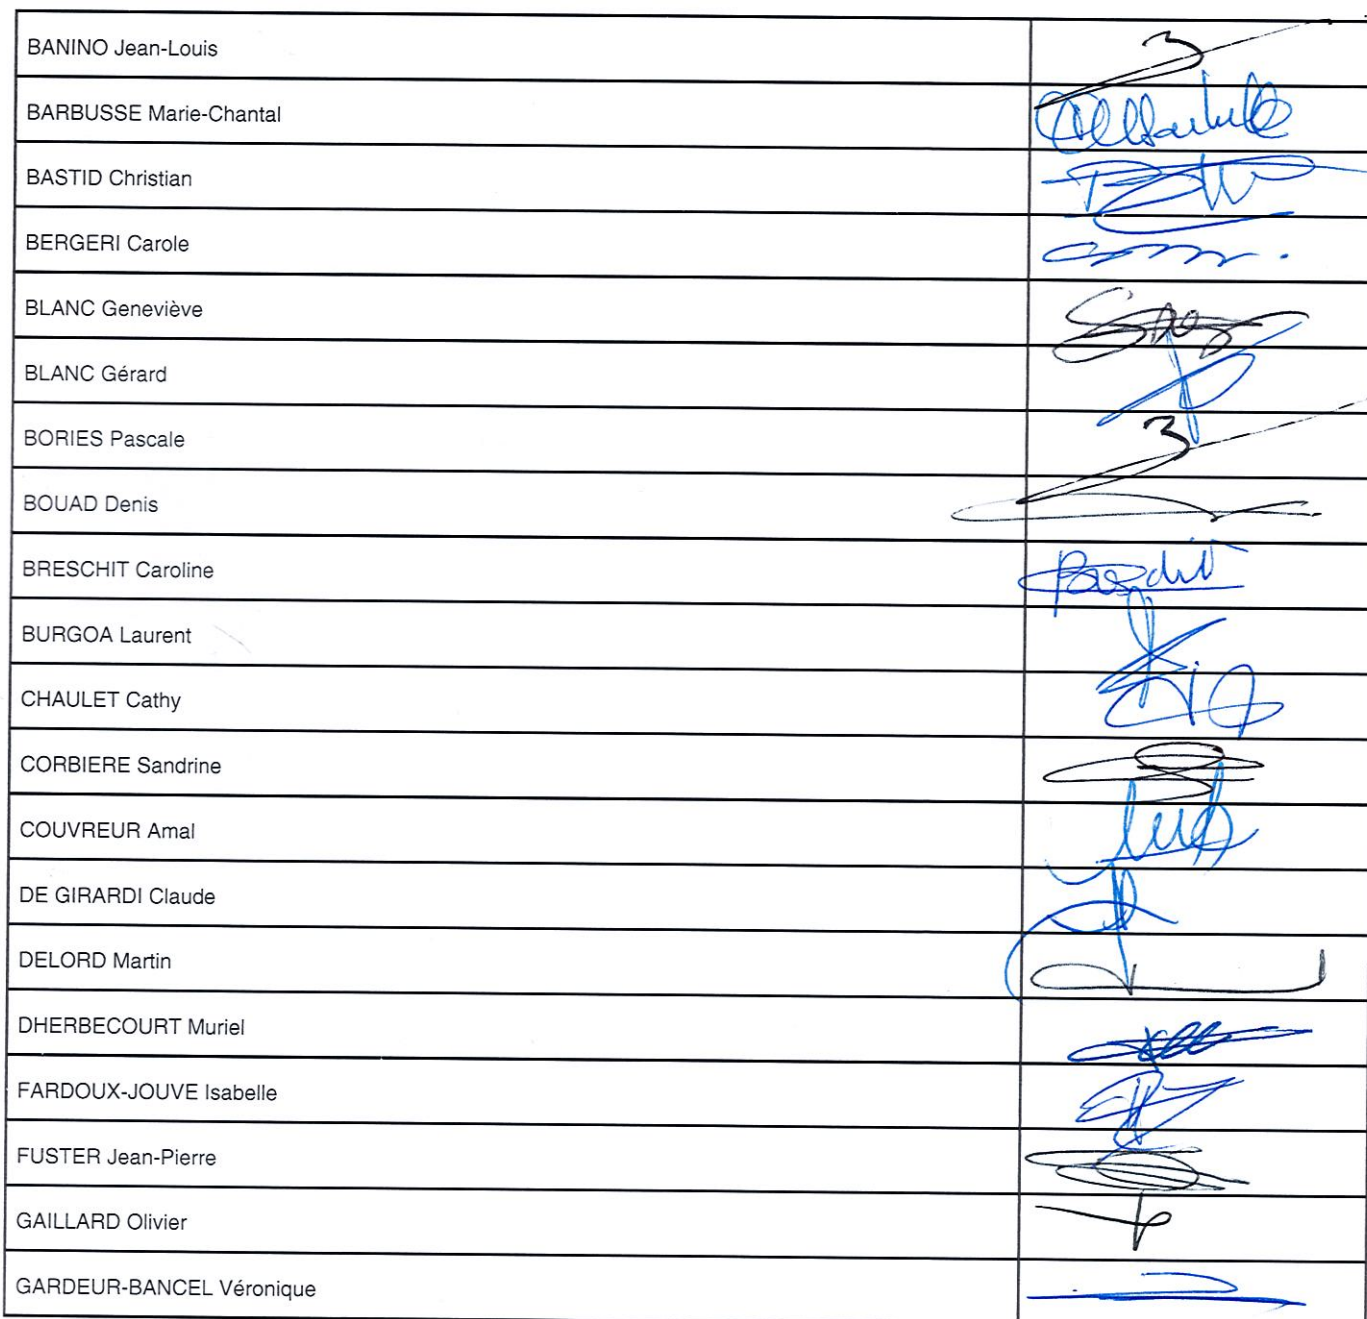 BANINO Jean-Louis
BARBUSSE Marie-Chantal
BASTID Christian
BERGERI Carole
BLANC Geneviève
BLANC Gérard
BORIES Pascale
BOUAD Denis
BRESCHIT Caroline
BURGOA Laurent
CHAULET Cathy
CORBIERE Sandrine
COUVREUR Amal
DE GIRARDI Claude
DELORD Martin
DHERBECOURT Muriel
FARDOUX-JOUVE Isabelle
FUSTER Jean-Pierre
GAILLARD Olivier
GARDEUR-BANCEL Véronique